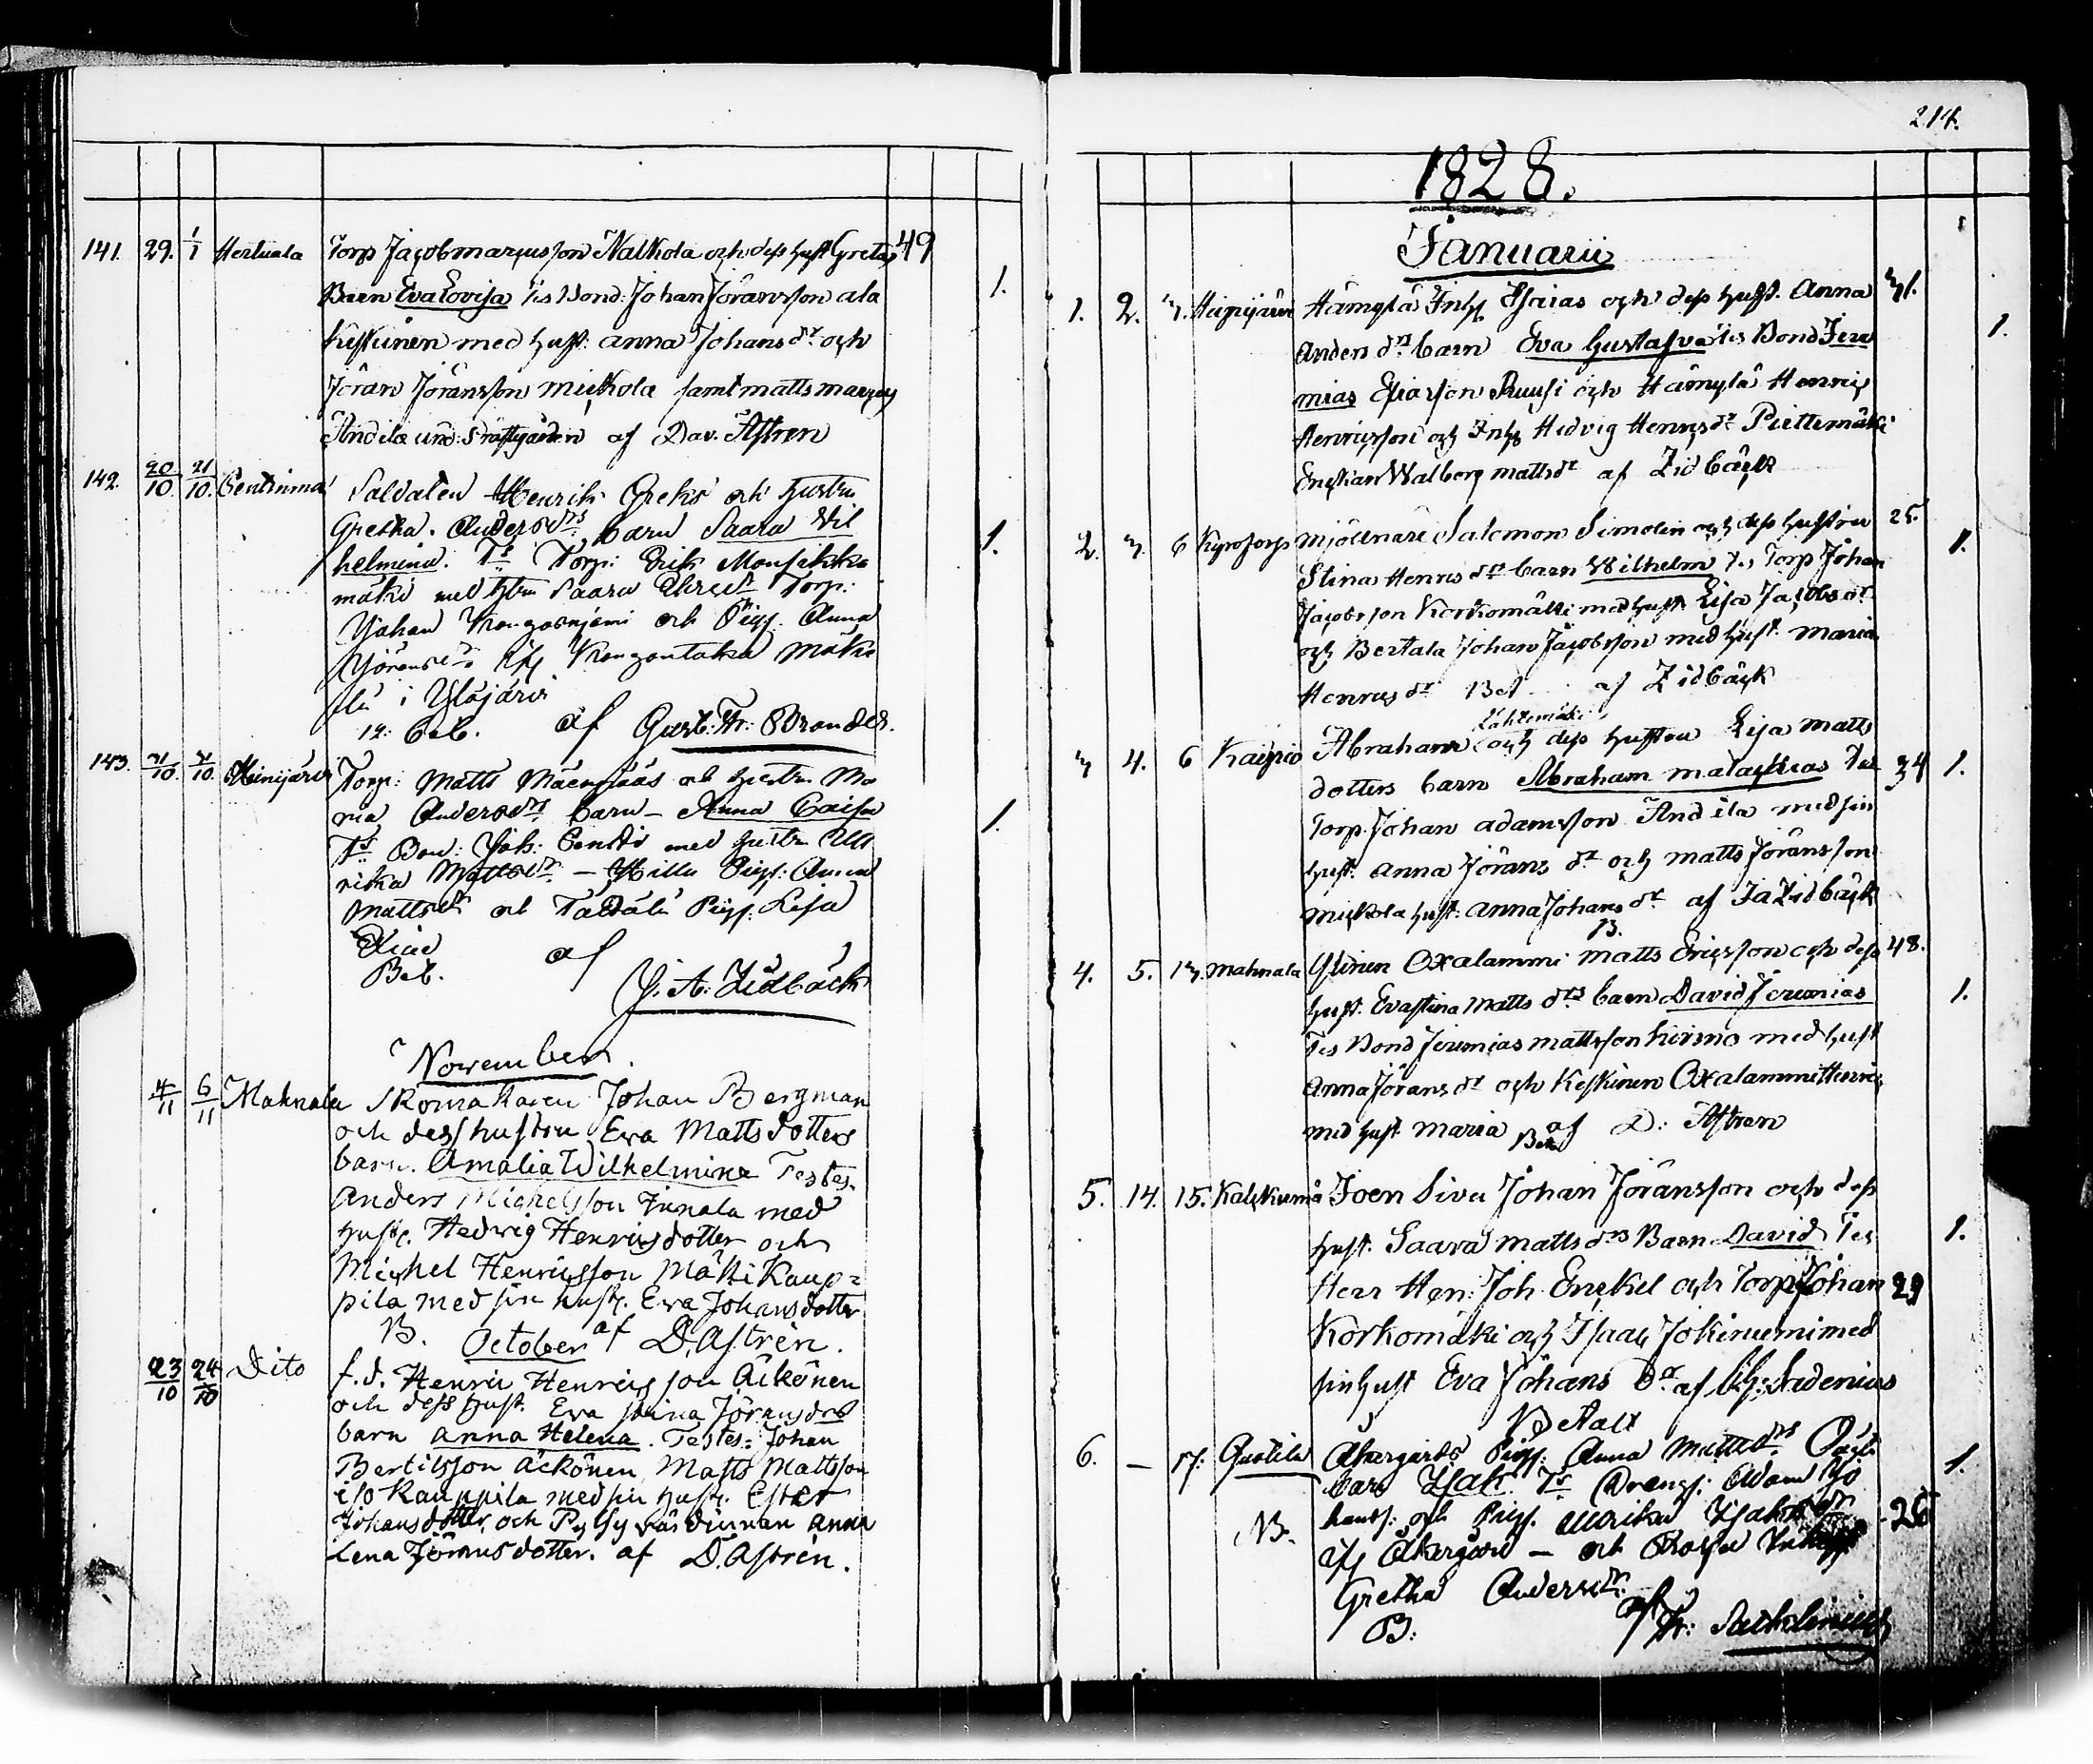 141. 29. 1/1 Hertuala Torp Jacob marcusson Nalkola och dess hust Greta 49
Barn Eva Lovisa Tes Bond: Johan Jöransson ala 1.
Keskinen med hust: anna Johans dr och
Jöran Jöransson mickola samt matts
Andila af Dav. Astren
142. 20/10. 21/10. Pentinma Soldaten Henrik och hustru
Gretha Andersdrs barn Saara Wil
helmina. Ts Torp: Erik 1.
mäki med Saara Torp:
Johan och Pig. Anna
i Ylöjärvi
af Gust: Fr: Brander.
143. 31/10. 31/10. Heinijärvi Torp: Matts och hustru Ma
ria Andersdrs barn – Anna Caisa
Ts Bon: Joh: Pentti med hustru Ull 1.
rika Mattsdr – Hillu Pig: Anna
Mattsdr och Pig: Lisa
af
Bet. J. A. Zidbäck
November.
4/11 6/11 Mahnala Skomakaren Johan Bergman
och dess hustru Eva Matts dotters
barn. Amalia Wilhelmina Testes.
Anders Michelsson Junala med
hust. Hedvig Henricsdotter och
Michel Henricsson Mätti Kaup=
pila med sin hust. Eva Johansdotter
B. af D. Astrèn.
October
23/10 24/10 Dito f.d. Henric Henricsson Äikönen
och dess hust. Eva stina Jöransdrs
barn Anna Helena. Testes: Johan
Bertilsson Äckönen, Matts Mattsson
iso Kauppila med sin hust. Ester
Johansdotter, och anna
Lena Jöransdotter. af D. Astrèn.
214.
1828.
Januarii
1. 2. 3. Heinijärvi Hämylä Inh Esaias och dess hust. Anna 31.
Anders drs barn Eva Gustafva Tes Bond Jere 1.
mias Esaiasson Ruusi och Hämylä Henric
Henricsson och Inh Hedvig Henricsdr Piettimäki
Walborg mattsdr af Zidbäck
2. 3. 6 Kyrofors mjöllnare Salomon Simolin och dess hustru 25.
Stina Henrics drs barn Wilhelm Tes Torp Johan 1.
Jacobsson Korkomäki med hust. Lisa Jacobs dr
och Bertala Johan Jacobsson med hust. maria
Henrics dr Bet af Zidbäck
3 4. 6 Kaipio Abraham Lahtemäki och dess hustru Lisa Matts
dotters barn Abraham malachias Tes 34 1.
Torp. Johan adamsson Andila med sin
hust. anna Jörans dr och matts Jöransson
mickola hust: anna Johans dr af Ja Zidbäck
B.
4. 5. 13. mahnala Ylinen Oxalammi matts Ericsson och dess 48.
hust. Evastina Matts drs barn David Jeremias 1.
Tes Bond Jeremias mattsson med hust
Anna Jörans dr och Keskinen Oxalammi
med hust maria af D: Astren
Bet
5. 14. 15. Kalkunmä Joen Sivu Johan Jöransson och dess
hust. Saara matts drs Barn David Tes 1.
Herr Hen: Joh. Enckel och Torp Johan 29
Korkomäki och Isaac Jokiniemi med
sin hust Eva Johans dr af
Betalt
6. – 17. Gustila Åkergårds Pig: Anna Mattsdrs
barn Isak Ts Dreng: Adam Jo 1.
B. hans: och Pig. Ullrika Isaksdr 25
Åkergård – och
Gretha Andersdr:
B: af Fr: